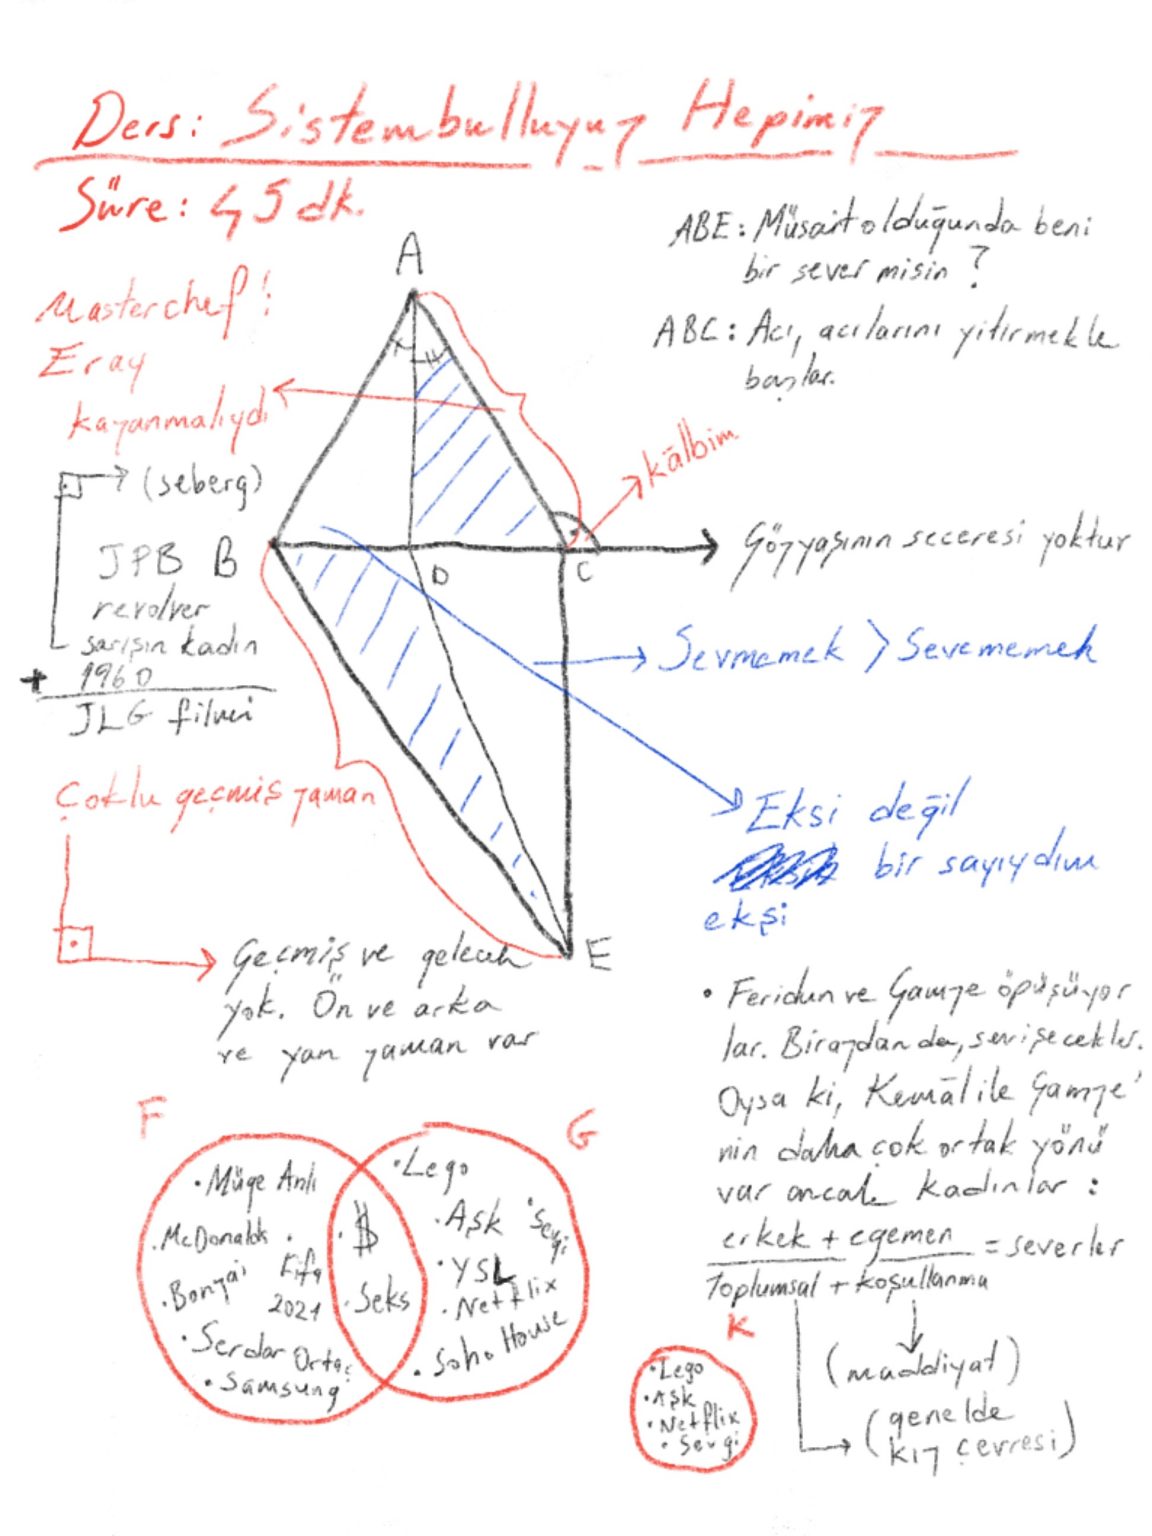 Ders: Sistembulluyuz Hepimiz
Süre: 45 dk.
ABE: Müsait olduğunda beni
bir sever misin?
ABC: Acı, acılarını yitirmekle
başlar.
A
Masterchef'i
Eray
kazanmalıydı
kâlbim
(seberg)
JPB
revolver
sarışın kadın
+ 1960
JLG filmi
B
D
C
Gözyaşının seceresi yoktur
Sevmemek > Sevememek
Çoklu geçmiş zaman
Eksi değil
bir sayıydım
ekşi
E
Geçmiş ve gelecek
yok. Ön ve arka
ve yan zaman var
• Feridun ve Gamze öpüşüyor
lar. Birazdan da, sevişecekler.
Oysa ki, Kemâl ile Gamze'
nin daha çok ortak yönü
var ancak kadınlar:
erkek + egemen
= severler
Toplumsal + koşullanma
(maddiyat)
(genelde
kız çevresi)
F
• Müge Anlı
• McDonalds
• Fifa
2021
• Bonzai
• Serdar Ortaç
• Samsung
• $
• Seks
G
• Lego
• Aşk
• Sevgi
• YSL
• Netflix
• Soho House
K
• Lego
• Aşk
• Netflix
• Sevgi